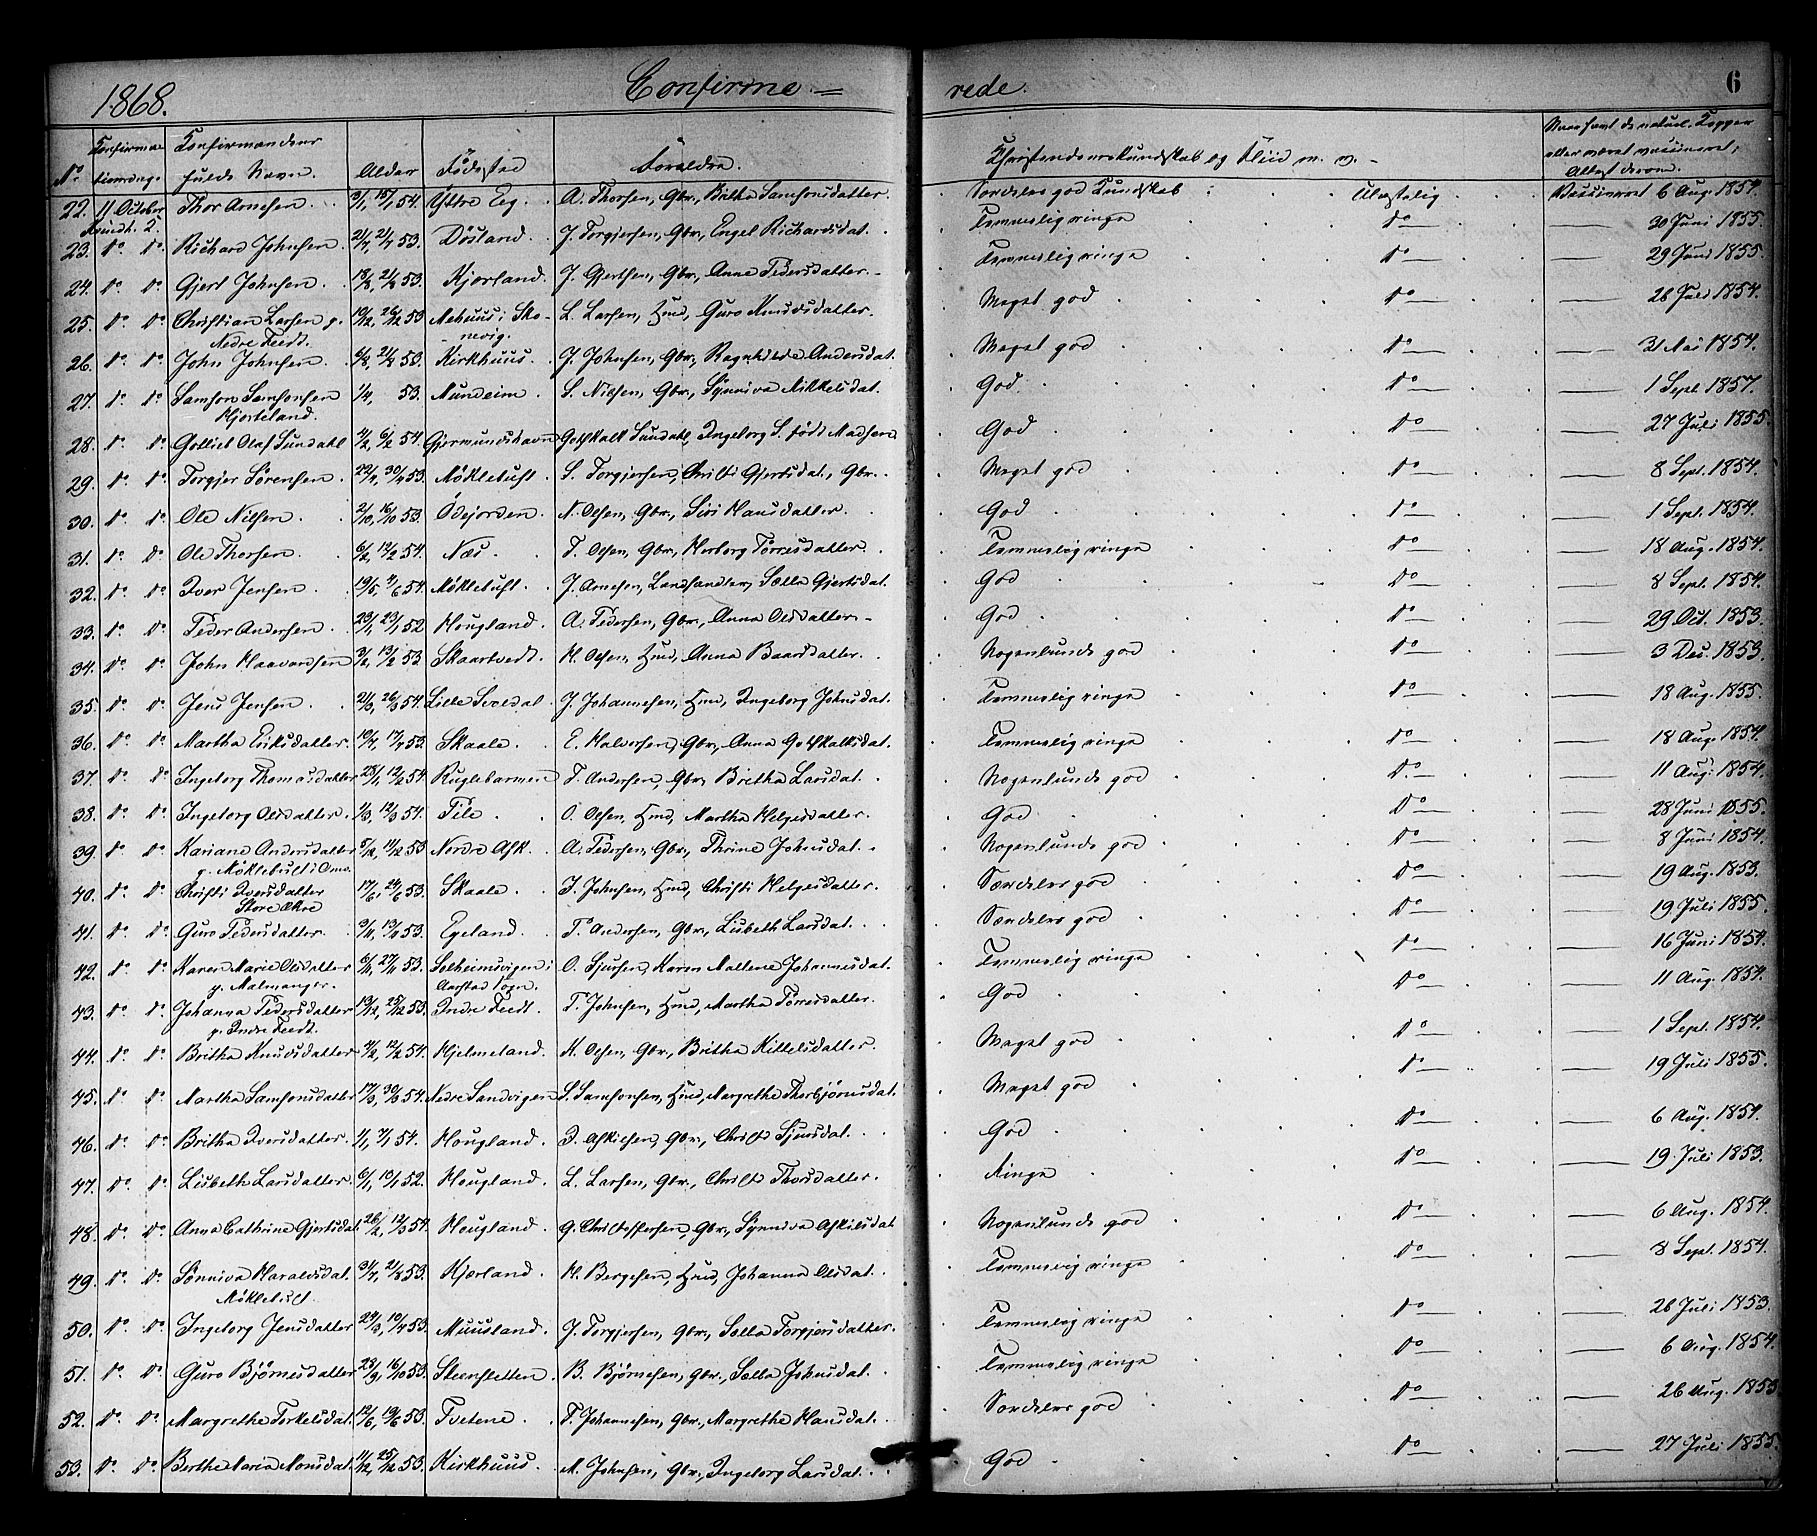 1868. Confirme- rede. 6
No Confirma- tionsdag. Confirmandens fulde Navn. Alder Fødested Forældre. Christendomskundskab og Fliid m. v. Vaccineret
22. 11 October Thor Arnesen. 3/1, 15/1 54. Ytre Eeg. A. Thorsen, Gbr, Britha Samsonsdatter. Særdeles god Kundskab Ulastelig Vaccineret 6 Aug. 1854.
23. do do Richard Johnsen. 53. Døsland. J. Torgjersen, Gbr, Engel Richardsdat. Temmelig ringe do 30 Juni 1855.
24. do do Gjert Johnsen. 53. Kjærland. J. Gjertsen, Gbr, Anne Pedersdatter. Temmelig ringe do 29 Juni 1855.
25. do do Christian Larsen p. Nedre Feedt. 19/12, 26/12 53 i Skonevig. L. Larsen, Hmd, Guro Knudsdatter. Meget god do 26 Juli 1854.
26. do do John Johnsen. 53. Kirkhuus. J. Johnsen, Gbr, Ragnhilde Andersdat. Meget god do 31 Mai 1854.
27. do do Samson Samsonsen Hjorteland. 1/4, 53. Mundeim. S. Nilsen, Gbr, Synniva Mikkelsdat. God do 1 Sept 1857.
28. do do Gotlieb Olaf Sundahl 54. Gjermundshavn Gotskalk Sundahl, Ingeborg S. født Madsen God do 27 Juli 1855.
29. do do Torgjer Sørensen. 22/4, 30/4 53. Møklebust. S. Torgjersen, Christi Gjertsdat, Gbr. Meget god do 8 Sept. 1854.
30. do do Ole Nilsen. 2/10, 16/10 53. Ødejorden. N. Olsen, Gbr, Siri Hansdatter. God do 1 Sept. 1854.
31. do do Ole Thorsen. 6/2, 12/2 54. Næs. T. Olsen, Gbr, Herborg Tørresdatter. Temmelig ringe do 18 Aug. 1854.
32. do do Iver Jensen. 54. Møklebust. J. Arnesen, Landhandler, Sælla Gjertsdat. God do 8 Sept. 1854.
33. do do Peder Andersen. 52 Hougland. A. Pedersen, Gbr, Anna Olsdatter. God do 29 Oct. 1853.
34. do do John Haavardsen 53 Skaartvedt. H. Olsen, Hmd, Anna Baardsdatter. Nogenlunde god do 3 Dec. 1853.
35. do do Jens Jensen. 54. Lille Svoldal. J. Johannesen, Hmd, Ingeborg Johnsdat. Temmelig ringe do 18 Aug. 1855.
36. do do Martha Eriksdatter. 10/7, 17/7 53. Skaale. E. Halvorsen, Gbr, Anna Gotskalksdat. Temmelig ringe do 18 Aug. 1854.
37. do do Ingeborg Thomasdatter 54. Kuglebarmen T. Andersen, Gbr, Britha Larsdat. Nogenlunde god do 11 Aug. 1854.
38. do do Ingeborg Olsdatter. 54. Tele. O. Olsen, Hmd, Martha Helgesdatter. God do 28 Juni 1855.
39. do do Kariane Andersdatter p. Møklebust i Omv. 53 Nordre Ask. A. Pedersen, Gbr, Thrine Johnsdat. Nogenlunde god do 8 Juni 1854.
40. do do Christi Iversdatter Store Økre 17/6, 24/6 53. Skaale. I. Johnsen, Hmd, Christi Helgesdatter. Særdeles god do 19 Aug. 1853.
41. do do Guro Pedersdatter. 53. Egeland. P. Andersen, Gbr, Lisbeth Larsdat. Særdeles god do 19 Juli 1855.
42. do do Karen Marie Olsdatter p. Malmanger. 6/11, 27/11 53. Solheimsvigen i Aarstad Sogn. O. Sjursen, Karen Maltene Johannesdat. Temmelig ringe do 16 Juni 1854.
43. do do Johanna Pedersdatter p. Indre Feedt. 53. Indre Feedt. P. Johnsen, Hmd, Martha Tørresdatter. God do 11 Aug. 1854.
44. do do Britha Knudsdatter 54. Hjelmeland. K. Olsen, Gbr, Britha Kittelsdatter. Meget god do 1 Sept. 1854.
45. do do Martha Samsonsdatter 54. Nedre Sandvigen S. Samsonsen, Hmd, Margrethe Thorbjørnsdat. Meget god do 19 Juli 1855.
46. do do Britha Iversdatter. 54. Hougland. I. Askildsen, Gbr, Christi Sjursdat. God do 6 Aug. 1854.
47. do do Lisbeth Larsdatter. 52. Hougland. L. Larsen, Gbr, Christi Thorsdatter. Ringe do 19 Juli 1853.
48. do do Anna Cathrine Gjertsdat. 26/2, 12/3 54. Hougland. G. Christoffersen, Gbr, Synniva Askilsdat Nogenlunde god do 6 Aug. 1854.
49. do do Sønniva Haraldsdat. Møklebust. 53. Kjærland. H. Bergesen, Hmd, Johanna Olsdat. Temmelig ringe do 8 Sept. 1854.
50. do do Ingeborg Jensdatter 53. Muusland. J. Torgjersen, Gbr, Sælla Torgjersdatter. Temmelig ringe do 26 Juli 1853.
51. do do Guro Bjørnesdatter 25/9, 16/10 53. Steensletten. B. Bjørnesen, Gbr, Sælla Johnsdat. Temmelig ringe do 6 Aug. 1854.
52. do do Margrethe Torkelsdat. 12/6, 19/6 53. Tvetene. T. Johannesen, Gbr, Margrethe Hansdat. Særdeles god do 26 Aug. 1853
53. do do Berthe Maria Monsdat. 11/12, 25/12 53. Kirkhuus. M. Johnsen, Gbr, Ingeborg Larsdat. God do 27 Juli 1855.